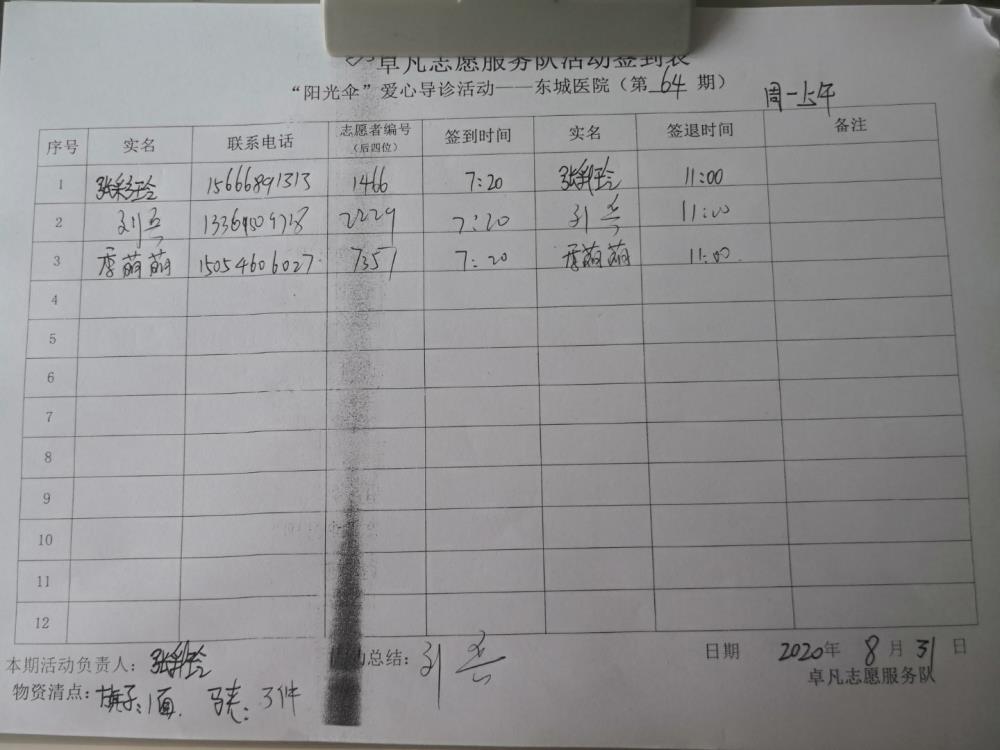 卓凡志愿服务队活动签到表
“阳光伞”爱心导诊活动——东城医院（第 64 期）
周一上午
序号 实名 联系电话 志愿者编号（后四位） 签到时间 实名 签退时间 备注
1 张彩玲 15666891313 1466 7:20 张彩玲 11:00
2 刘 2229 7:20 刘 11:00
3 李萌萌 15054606027 7351 7:20 李萌萌 11:00
4
5
6
7
8
9
10
11
12
本期活动负责人： 张彩玲 动总结： 刘 日期 2020年 8 月 31 日
物资清点： 旗子：1面. 马夹：3件 卓凡志愿服务队